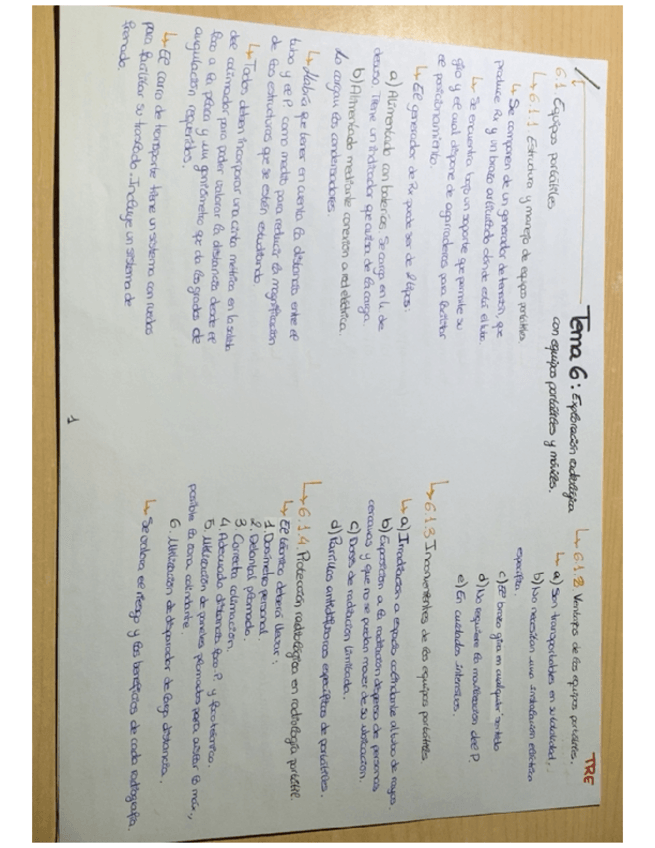 TRE
Tema 6: Exploración radiológica
con equipos portátiles y móviles.
6.1 Equipos portátiles
↳ 6.1.1 Estructura y manejo de equipos portátiles
↳ Se componen de un generador de tensión, que
produce Rx y un brazo articulado donde está el tubo.
↳ Se encuentra bajo un soporte que permite su
giro y el cual dispone de agarraderos para facilitar
el posicionamiento.
↳ El generador de Rx puede ser de 2 tipos:
a) Alimentado con baterías. Se carga en h. de
desuso. Tiene un indicador que avisa de la carga.
b) Alimentado mediante conexión a red eléctrica.
La cargan los condensadores.
↳ Habría que tener en cuenta la distancia entre el
tubo y el P. como medio para reducir la magnificación
de las estructuras que se están estudiando.
↳ Todos deben incorporar una cinta métrica en la salida
del colimador para poder valorar la distancia desde el
foco a la placa y un goniómetro que da los grados de
angulación requeridos.
↳ El carro de transporte tiene un sistema con ruedas
para facilitar su traslado. Incluye un sistema de
frenado.
↳ 6.1.2 Ventajas de los equipos portátiles.
↳ a) Son transportables en su totalidad.
b) No necesitan una instalación eléctrica
específica.
c) El brazo gira en cualquier sentido
d) No requiere la movilización del P.
e) En cuidados intensivos.
↳ 6.1.3 Inconvenientes de los equipos portátiles
↳ a) Irradiación a espacio colindante al tubo de rayos.
b) Exposición a la radiación dispersa de personas
cercanas y que no se puedan mover de su ubicación.
c) Dosis de radiación limitada.
d) Parrillas antidifusoras específicas de portátiles.
↳ 6.1.4. Protección radiológica en radiología portátil.
↳ El técnico deberá llevar:
1. Dosímetro personal.
2. Delantal plomado.
3. Correcta colimación.
4. Adecuada distancia foco-P. y foco-técnico.
5. Utilización de paneles plomados para evitar lo máx.,
posible la zona colindante.
6. Utilización de disparador de larga distancia.
↳ Se valora el riesgo y los beneficios de cada radiografía.
1